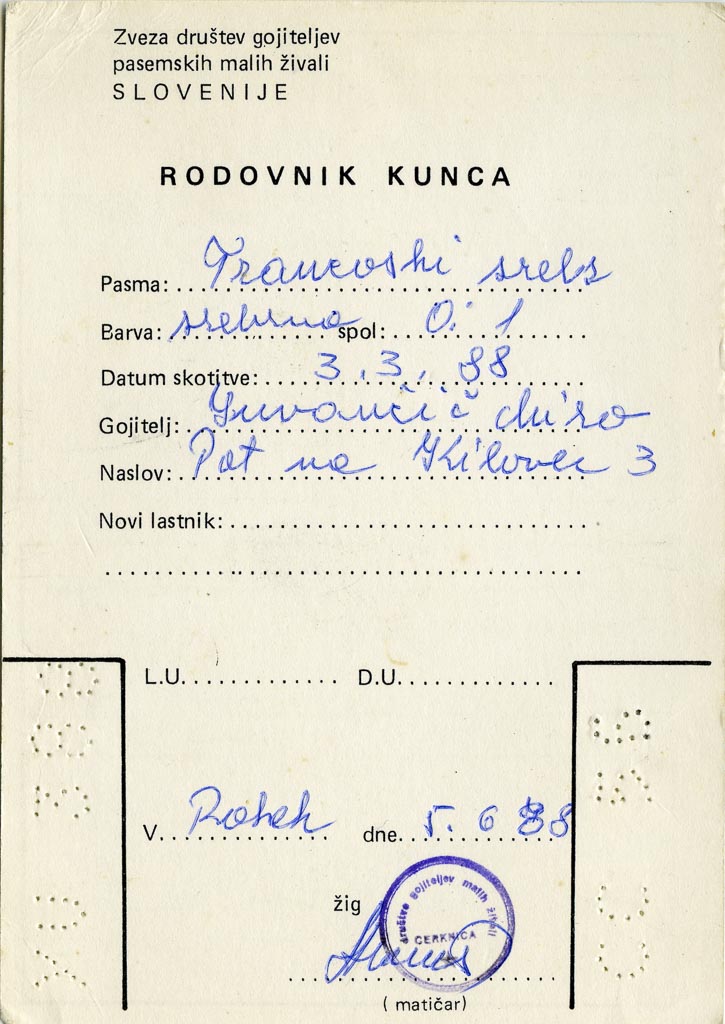 Zveza društev gojiteljev
pasemskih malih živali
SLOVENIJE
RODOVNIK KUNCA
Pasma: Francoski srebs
Barva: srebrna spol: 0.1
Datum skotitve: 3. 3. 88
Gojitelj: Juvančič Miro
Naslov: Pot na Kilovec 3
Novi lastnik:
L.U. D.U.
V. Rakek dne 5. 6 88
žig
društvo gojiteljev malih živali
CERKNICA
(matičar)